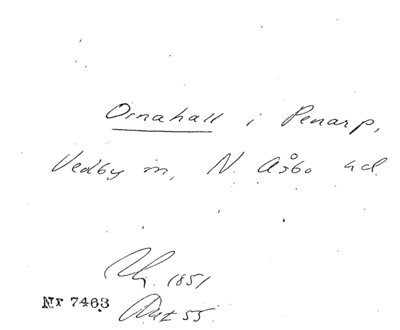 Ornahall i Penarp,
Vedby sn, N. Åsbo hd
1851
Nr 7463
55